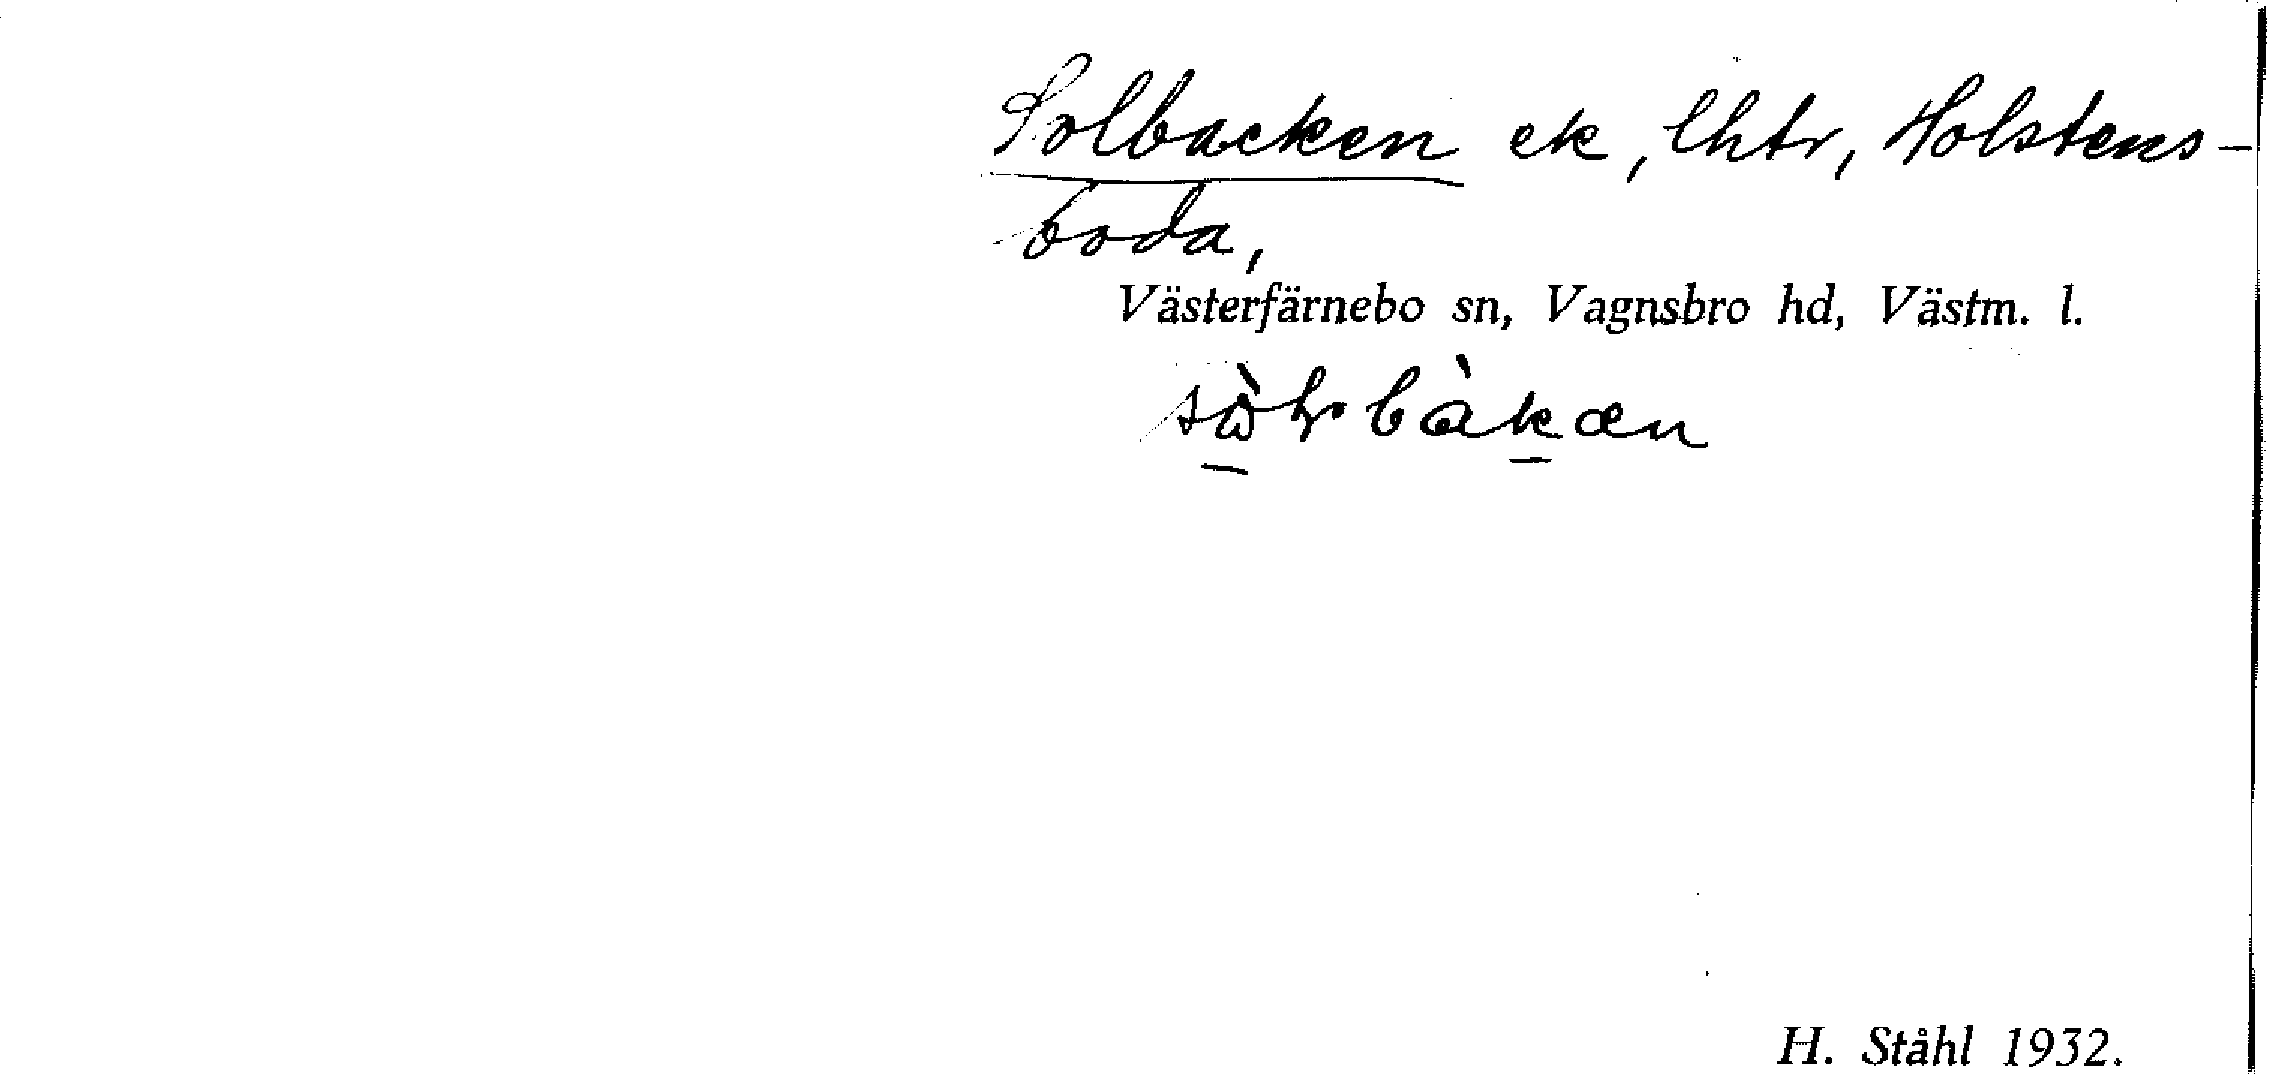 Solbacken ek, lhtr, Holstens-
boda,
Västerfärnebo sn, Vagnsbro hd, Västm. l.
H. Ståhl 1932.